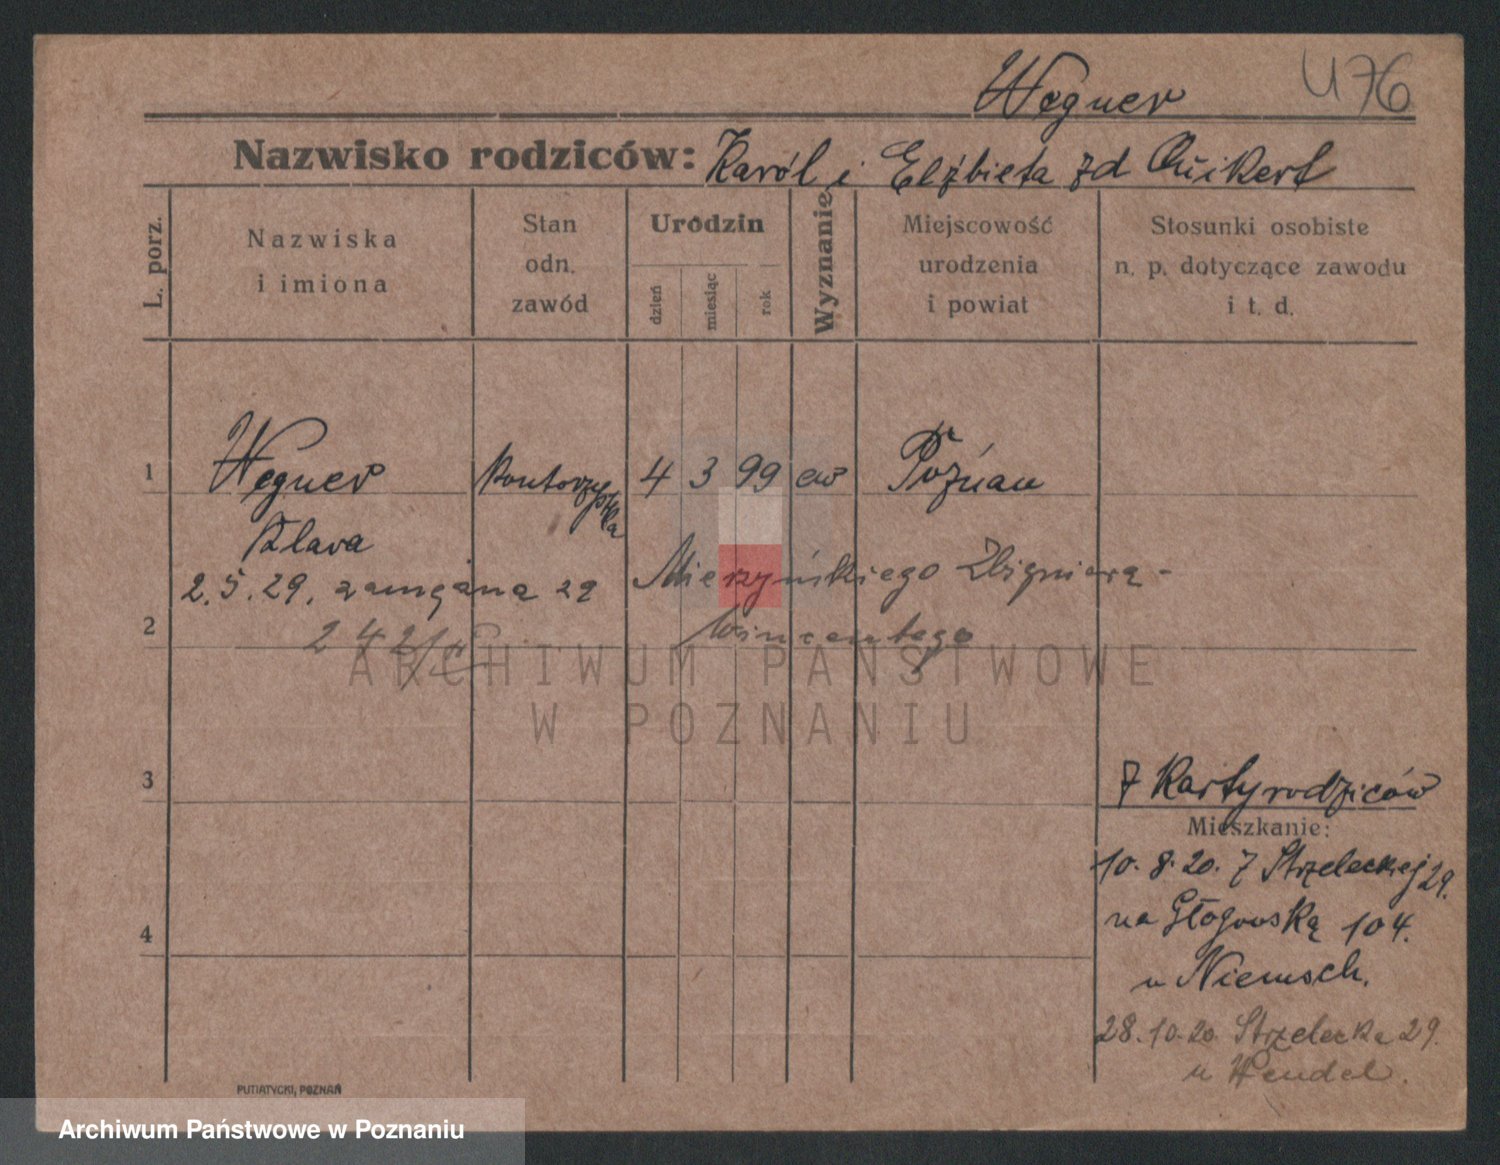 Wegner
476
Nazwisko rodziców: Karól i Elżbieta zd
L. porz.
Nazwiska i imiona
Stan odn. zawód
Urodzin
dzień
miesiąc
rok
Wyznanie
Miejscowość urodzenia i powiat
Stosunki osobiste n. p. dotyczące zawodu i t. d.
1
Wegner
Kontorzystka
4 3 99
ew
Poznań
Klara
2.5.29. zamężna za Mierzyńskiego Zbigniewa-
2
Wincentego
ARCHIWUM PAŃSTWOWE
W POZNANIU
3
z Karty rodziców
Mieszkanie:
10. 8. 20. z Strzeleckiej 29.
na Głogowską 104.
4
u Niemsch.
28. 10. 20. Strzelecka 29.
u Wendel.
PUTIATYCKI, POZNAŃ
Archiwum Państwowe w Poznaniu